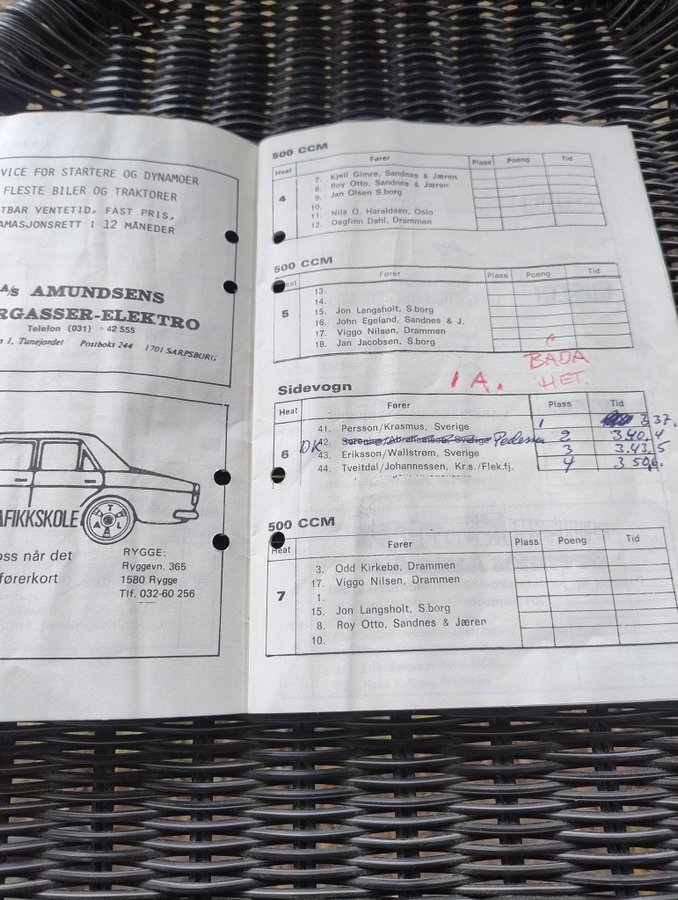 VICE FOR STARTERE OG DYNAMOER
FLESTE BILER OG TRAKTORER
TBAR VENTETID, FAST PRIS,
AMASJONSRETT I 12 MÅNEDER
A/S AMUNDSENS
RGASSER-ELEKTRO
Telefon (031) - 42 555
n 1, Tunejordet Postboks 244 1701 SARPSBORG
AFIKKSKOLE
TAL
oss når det
førerkort
RYGGE:
Ryggevn. 365
1580 Rygge
Tlf. 032-60 256
500 CCM
Heat Fører Plass Poeng Tid
4
7. Kjell Gimre, Sandnes & Jæren
8. Roy Otto, Sandnes & Jæren
9. Jan Olsen S.borg
10.
11. Nils O. Haraldsen, Oslo
12. Dagfinn Dahl, Drammen
500 CCM
Heat Fører Plass Poeng Tid
5
13.
14.
15. Jon Langsholt, S.borg
16. John Egeland, Sandnes & J.
17. Viggo Nilsen, Drammen
18. Jan Jacobsen, S.borg
1 A. BADA
HET.
Sidevogn
Heat Fører Plass Tid
6
41. Persson/Krasmus, Sverige 1 3.37.
DK 42. Pedersen 2 3.40.4
43. Eriksson/Wallstrøm, Sverige 3 3.43.5
44. Tveitdal/Johannessen, Kr.s./Flek.fj. 4
500 CCM
Heat Fører Plass Poeng Tid
7
3. Odd Kirkebø, Drammen
17. Viggo Nilsen, Drammen
1.
15. Jon Langsholt, S.borg
8. Roy Otto, Sandnes & Jæren
10.